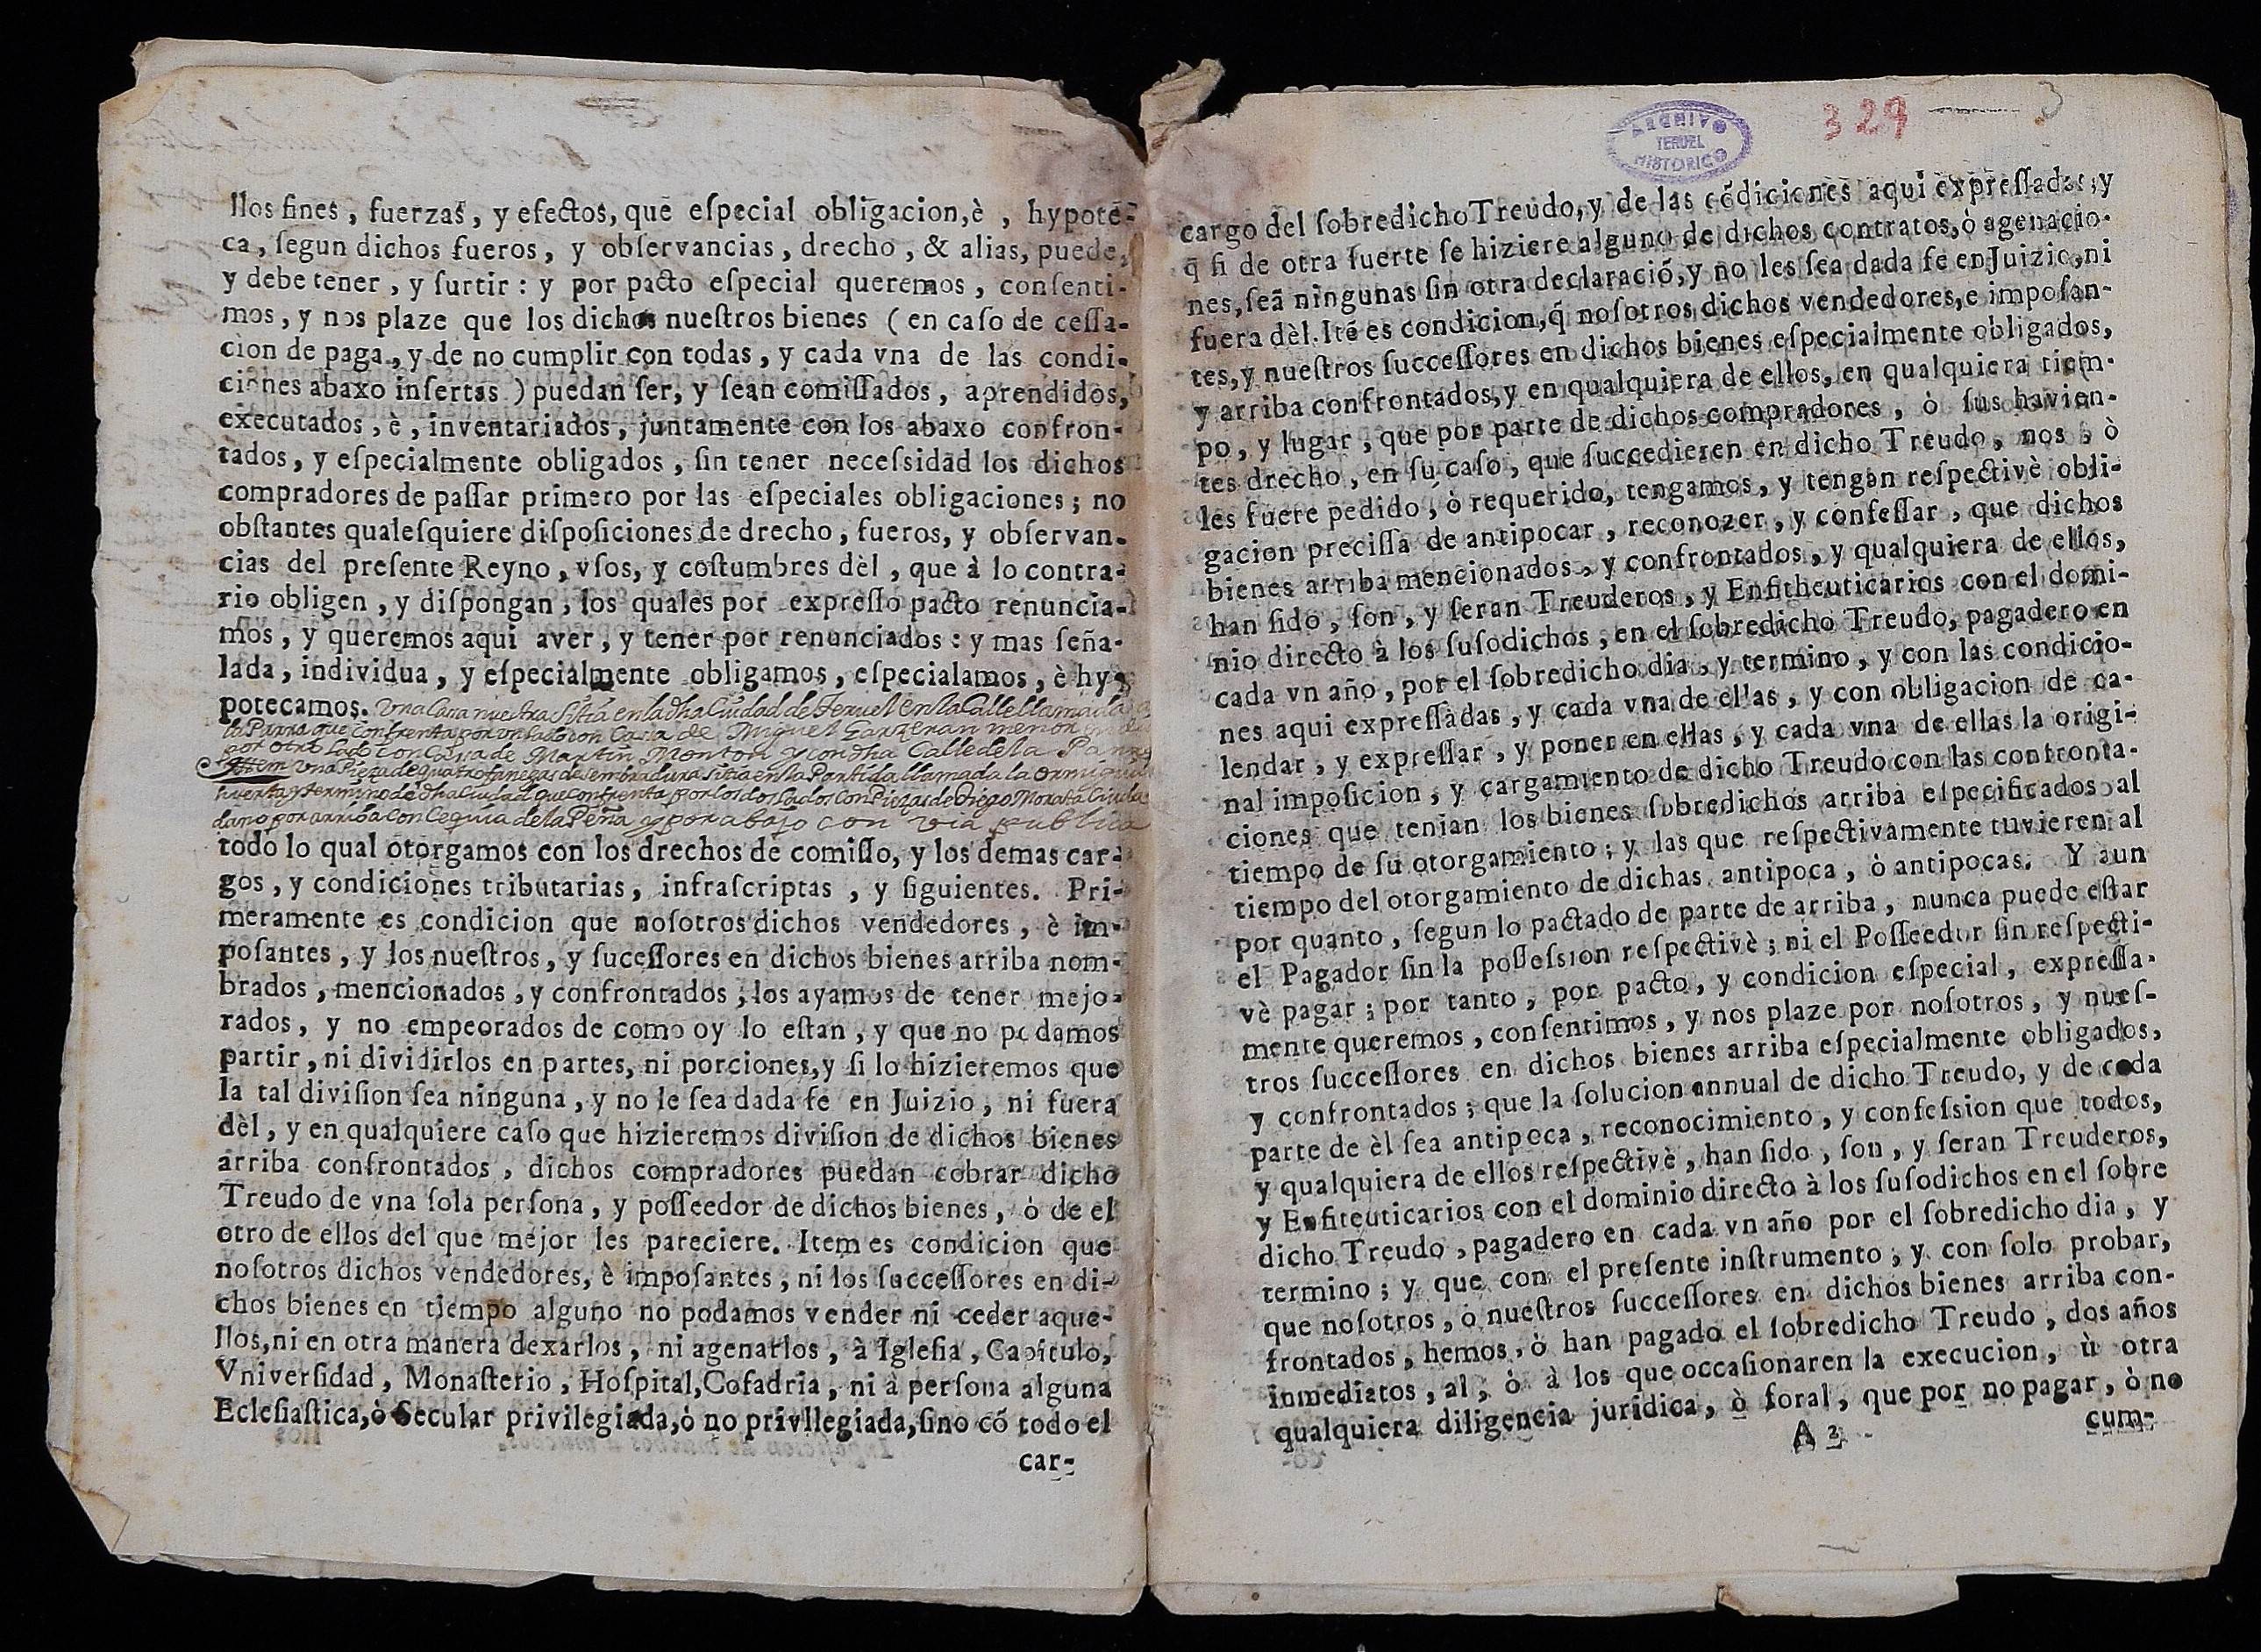 llos fines, fuerzas, y efectos, que eſpecial obligacion, è, hypote-
ca, ſegun dichos fueros, y obſervancias, drecho, & alias, puede,
y debe tener, y ſurtir: y por pacto eſpecial queremos, conſenti-
mos, y nos plaze que los dichos nueſtros bienes (en caſo de ceſſa-
cion de paga, y de no cumplir con todas, y cada vna de las condi-
ciones abaxo inſertas) puedan ſer, y ſean comiſſados, aprendidos,
executados, è, inventariados, juntamente con los abaxo confron-
tados, y eſpecialmente obligados, ſin tener neceſsidad los dichos
compradores de paſſar primero por las eſpeciales obligaciones; no
obſtantes qualeſquiere diſpoſiciones de drecho, fueros, y obſervan-
cias del preſente Reyno, vſos, y coſtumbres dèl, que à lo contra-
rio obligen, y diſpongan, los quales por expreſſo pacto renuncia-
mos, y queremos aqui aver, y tener por renunciados: y mas ſeña-
lada, individua, y eſpecialmente obligamos, eſpecialamos, è hy-
potecamos. Una Casa nuestra Sitia en la dha Ciudad de Teruel en la Calle llamada
la Parra que confrenta por un lado con Casa de Miguel Garzeran menor
por otro lado con Casa de Martin Monton y con dha Calle de la Parra
Ittem Una Pieza de quatro fanegas de sembradura sitia en la Partida llamada la
huerta y termino de dha Ciudad que confrenta por los dos lados con Piezas de Diego Ciuda
dano por arriba con Cequia de la Peña y por abajo con via publica
todo lo qual otorgamos con los drechos de comiſſo, y los demas car-
gos, y condiciones tributarias, infraſcriptas, y ſiguientes. Pri-
meramente es condicion que noſotros dichos vendedores, è im-
poſantes, y los nueſtros, y ſuceſſores en dichos bienes arriba nom-
brados, mencionados, y confrontados, los ayamos de tener mejo-
rados, y no empeorados de como oy lo eſtan, y que no podamos
partir, ni dividirlos en partes, ni porciones, y ſi lo hizieremos que
la tal diviſion ſea ninguna, y no le ſea dada fe en Juizio, ni fuera
dèl, y en qualquiere caſo que hizieremos diviſion de dichos bienes
arriba confrontados, dichos compradores puedan cobrar dicho
Treudo de vna ſola perſona, y poſſeedor de dichos bienes, ò de el
otro de ellos del que mejor les pareciere. Item es condicion que
noſotros dichos vendedores, è impoſantes, ni los ſucceſſores en di-
chos bienes en tiempo alguno no podamos vender ni ceder aque-
llos, ni en otra manera dexarlos, ni agenarlos, à Igleſia, Capitulo,
Vniverſidad, Monaſterio, Hoſpital, Cofadria, ni à perſona alguna
Ecleſiaſtica, ò Secular privilegiada, ò no privllegiada, ſino cõ todo el
car-
ARCHIVO
TERUEL
HISTORICO
329
3
cargo del ſobredicho Treudo, y de las cõdiciones aqui expreſſadas; y
q̃ ſi de otra ſuerte ſe hiziere alguno de dichos contratos, ò agenacio-
nes, ſeã ningunas ſin otra declaraciõ, y no les ſea dada fe en Juizio, ni
fuera dèl. Itẽ es condicion, q̃ noſotros dichos vendedores, e impoſan-
tes, y nueſtros ſucceſſores en dichos bienes eſpecialmente obligados,
y arriba confrontados, y en qualquiera de ellos, en qualquiera tiem-
po, y lugar, que por parte de dichos compradores, ò ſus havien-
tes drecho, en ſu caſo, que ſuccedieren en dicho Treudo, nos, ò
les fuere pedido, ò requerido, tengamos, y tengan reſpectivè obli-
gacion preciſſa de antipocar, reconozer, y confeſſar, que dichos
bienes arriba mencionados, y confrontados, y qualquiera de ellos,
han ſido, ſon, y ſeran Treuderos, y Enfitheuticarios con el domi-
nio directo à los ſuſodichos, en el ſobredicho Treudo, pagadero en
cada vn año, por el ſobredicho dia, y termino, y con las condicio-
nes aqui expreſſadas, y cada vna de ellas, y con obligacion de ca-
lendar, y expreſſar, y poner en ellas, y cada vna de ellas la origi-
nal impoſicion, y cargamiento de dicho Treudo con las confronta-
ciones que tenian los bienes ſobredichos arriba eſpecificados al
tiempo de ſu otorgamiento; y las que reſpectivamente tuvieren al
tiempo del otorgamiento de dichas antipoca, ò antipocas. Y aun
por quanto, ſegun lo pactado de parte de arriba, nunca puede eſtar
el Pagador ſin la poſſeſsion reſpectivè; ni el Poſſeedor ſin reſpecti-
vè pagar; por tanto, por pacto, y condicion eſpecial, expreſſa-
mente queremos, conſentimos, y nos plaze por noſotros, y nueſ-
tros ſucceſſores en dichos bienes arriba eſpecialmente obligados,
y confrontados; que la ſolucion annual de dicho Treudo, y de cada
parte de èl ſea antipoca, reconocimiento, y confeſsion que todos,
y qualquiera de ellos reſpectivè, han ſido, ſon, y ſeran Treuderos,
y Enfiteuticarios con el dominio directo à los ſuſodichos en el ſobre
dicho Treudo, pagadero en cada vn año por el ſobredicho dia, y
termino; y que con el preſente inſtrumento, y con ſolo probar,
que noſotros, ò nueſtros ſucceſſores en dichos bienes arriba con-
frontados, hemos, ò han pagado el ſobredicho Treudo, dos años
inmediatos, al, ò à los que occaſionaren la execucion, ù otra
qualquiera diligencia juridica, ò foral, que por no pagar, ò no
A 2
cum-